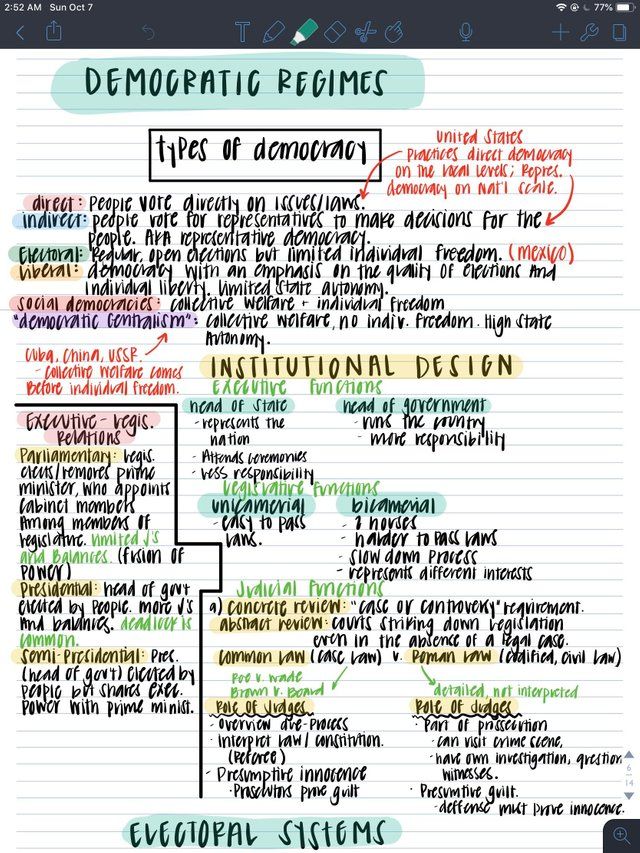 2:52 AM Sun Oct 7
77%
DEMOCRATIC REGIMES
types of democracy
United States
Practices direct democracy
on the local levels; Repres.
democracy on Nat'l scale.
direct: People vote directly on issues/laws.
indirect: people vote for representatives to make decisions for the
people. AKA representative democracy.
Electoral: Regular, open elections but limited individual freedom. (Mexico)
Liberal: democracy with an emphasis on the quality of elections and
individual liberty. limited state autonomy.
social democracies: collective welfare + individual freedom
"democratic centralism": collective welfare, no indiv. freedom. High State
Autonomy.
Cuba, China, USSR.
- Collective welfare comes
Before individual freedom.
INSTITUTIONAL DESIGN
Executive Functions
head of state
- represents the
nation
- Attends ceremonies
- Less responsibility
head of government
- runs the country
- more responsibility
Executive - Legis.
Relations
Parliamentary: Legis.
elects/removes prime
minister, who appoints
Cabinet members
Among members of
legislative. limited √'s
and Balances. (fusion of
Power)
Presidential: head of gov't
elected by People. more √'s
And balances. deadlock is
common.
Semi-Presidential: Pres.
(head of gov't) elected by
people but shares exec.
Power with prime minist.
Legislative Functions
unicamerial
- easy to pass
laws.
bicamerial
- 2 houses
- harder to Pass laws
- slow down process
- represents different interests
Judicial Functions
a) concrete review: "case or controversy" requirement.
abstract review: courts striking down legislation
even in the absence of a legal case.
Common law (case law) v. Roman law (codified, civil law)
Roe v. Wade
Brown v. Board
detailed, not interpreted
Role of Judges
- Overview due-Process
- Interpret law / constitution.
(Referee)
- Presumptive innocence
- Prosecutors prove guilt
Role of Judges
- Part of prosecution
- can visit crime scene,
- have own investigation, question
witnesses.
- Presumtive guilt.
- defense must prove innocence.
6
14
ELECTORAL SYSTEMS